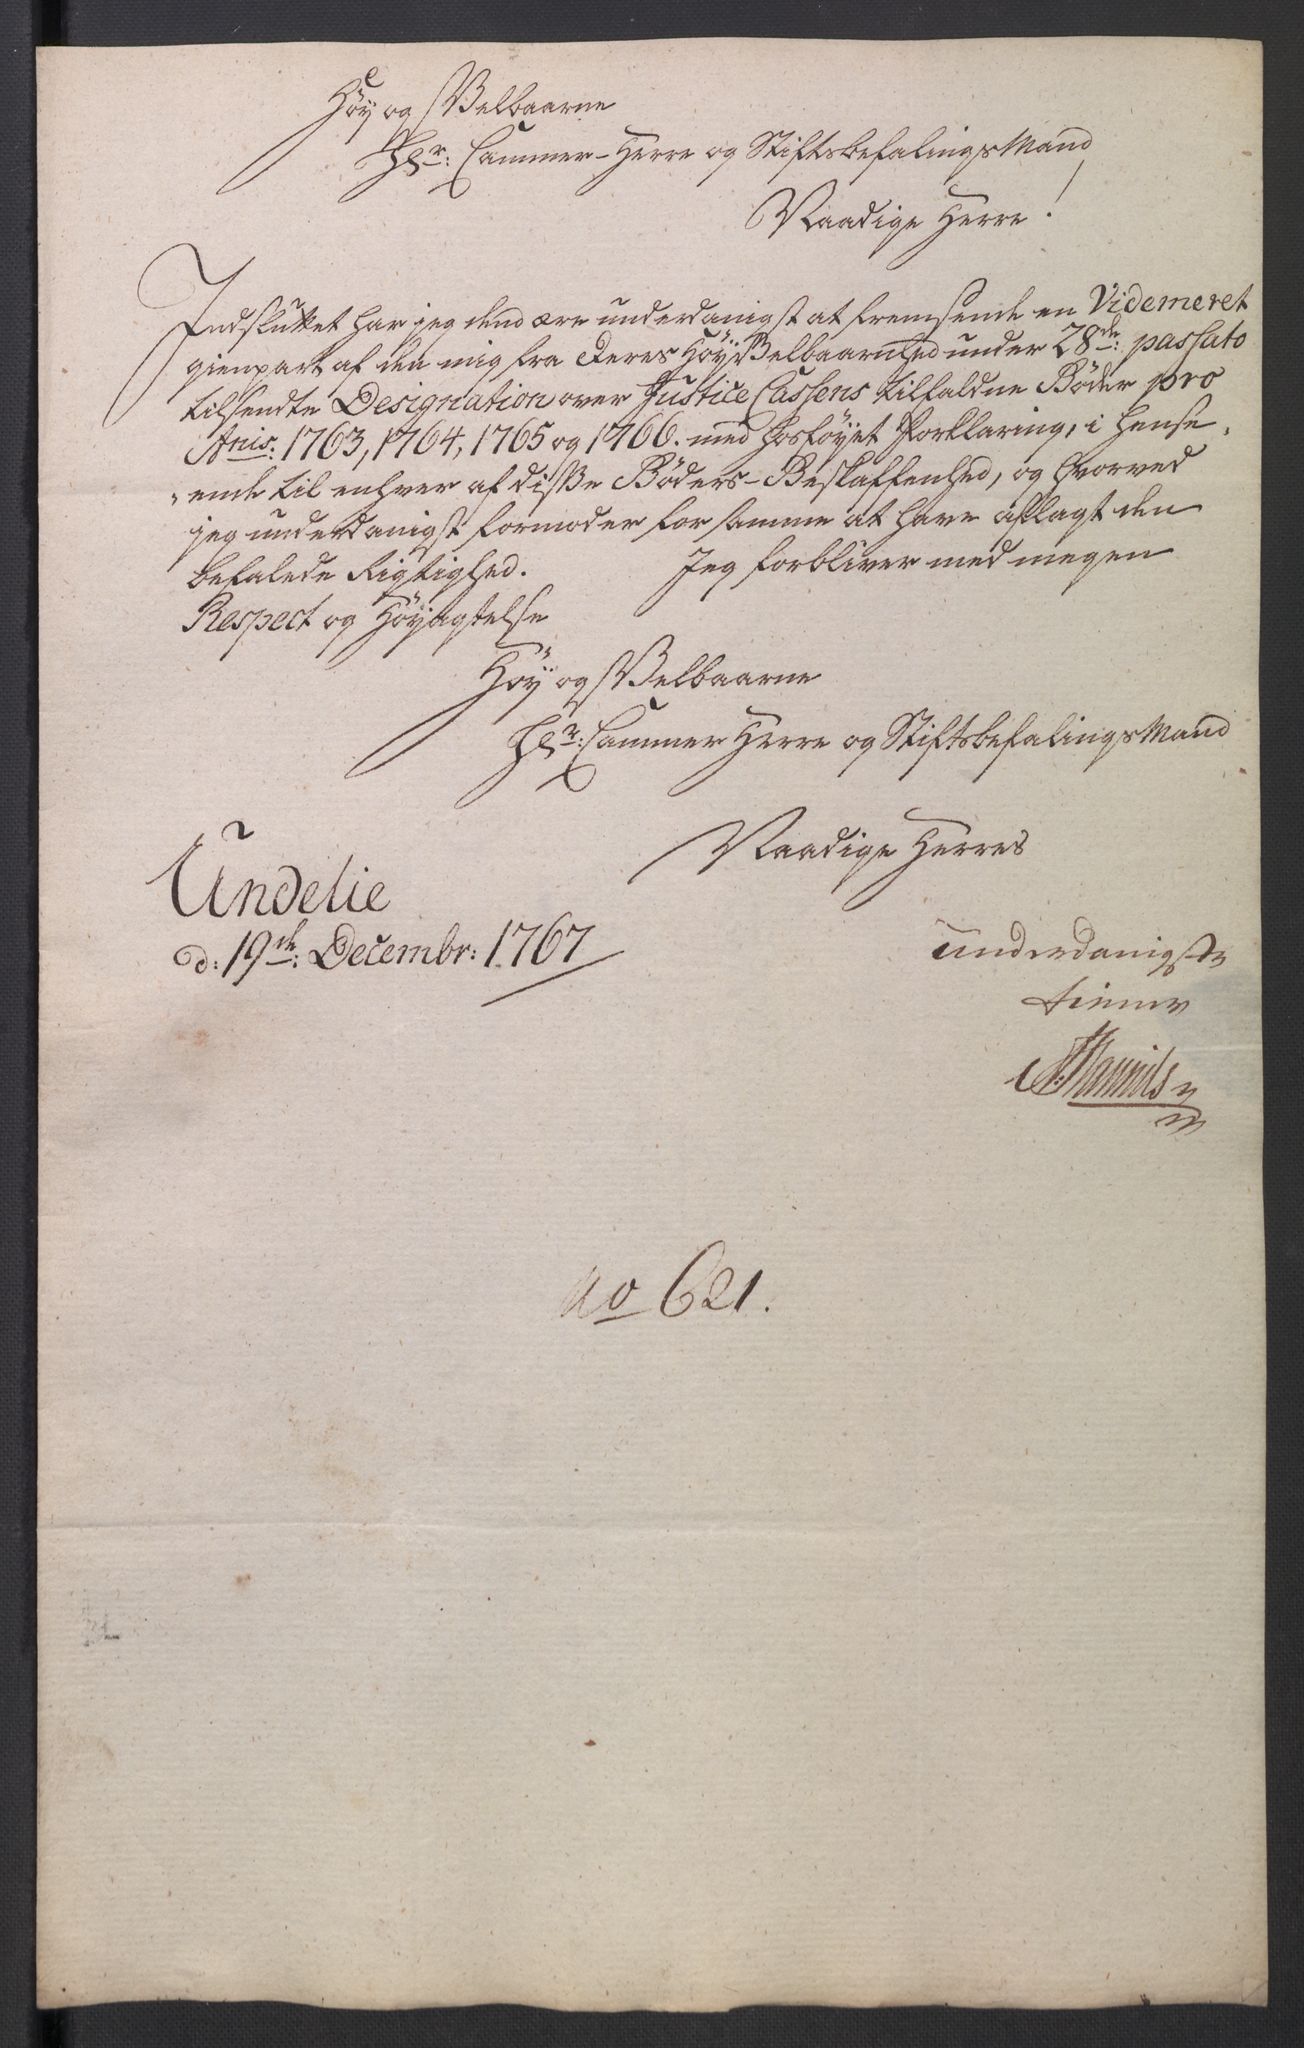 Høy og Velbaarne
Hr: Cammer-Herre og Stiftsbefalings Mand
Naadige Herre!
Indsluttet har jeg dend ære underdanigst at fremsende en Videmeret
gienpart af den mig fra Deres Høy Velbaarnhed under 28de: passato
tilsendte Designation over Justice Cassens tilfaldne Bøder pro
Anis: 1763, 1764, 1765 og 1766. med hosføyet Forklaring, i Hense-
ende til enhver af disse Bøders-Beskaffenhed, og hvorved
jeg underdanigst formoder for samme at have aflagt den
befalede Rigtighed. Jeg forbliver med megen
Respect og Høyagtelse
Høy og Velbaarne
Hr: Cammer Herre og Stiftsbefalings Mand
Naadige Herres
Undelie
d: 19de: Decembr: 1767
underdanigste
tiener
No 621.